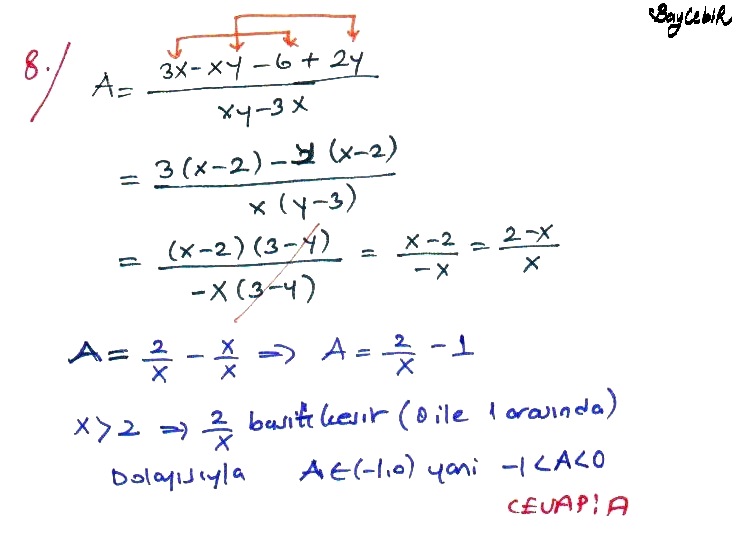 BayCebiR
8./ A = (3x - xy - 6 + 2y) / (xy - 3x)
= (3(x-2) - y(x-2)) / (x(y-3))
= ((x-2)(3-y)) / (-x(3-y)) = (x-2) / (-x) = (2-x) / x
A = 2/x - x/x ⇒ A = 2/x - 1
x>2 ⇒ 2/x basit kesir (0 ile 1 arasında)
Dolayısıyla A ∈ (-1,0) yani -1<A<0
CEVAP: A